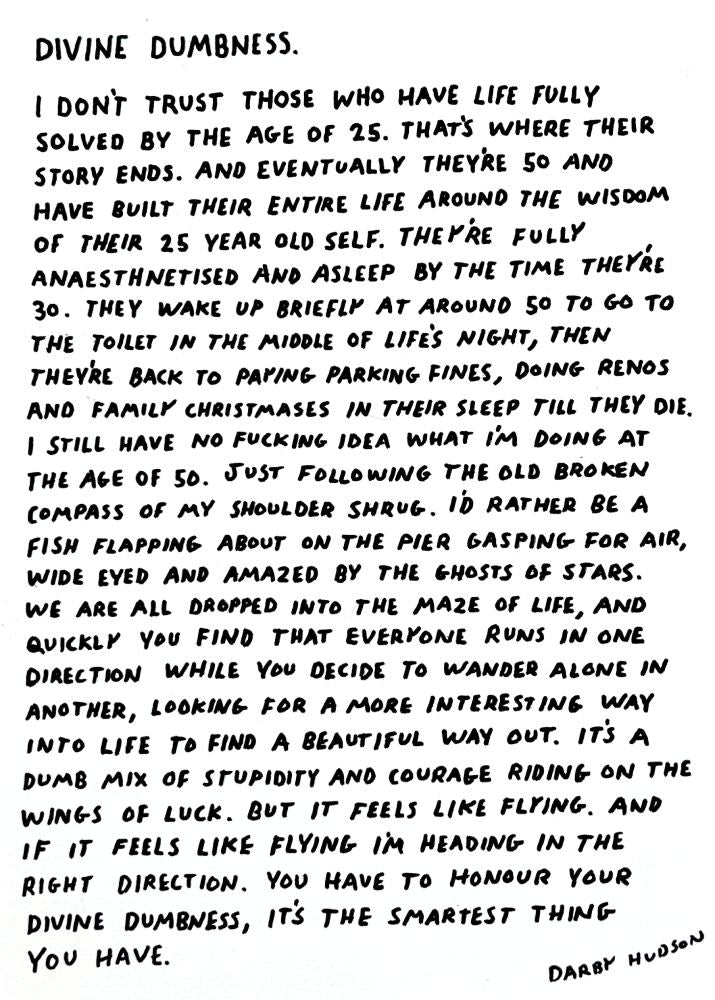 DIVINE DUMBNESS.
I DON'T TRUST THOSE WHO HAVE LIFE FULLY
SOLVED BY THE AGE OF 25. THAT'S WHERE THEIR
STORY ENDS. AND EVENTUALLY THEY'RE 50 AND
HAVE BUILT THEIR ENTIRE LIFE AROUND THE WISDOM
OF THEIR 25 YEAR OLD SELF. THEY'RE FULLY
ANAESTHNETISED AND ASLEEP BY THE TIME THEY'RE
30. THEY WAKE UP BRIEFLY AT AROUND 50 TO GO TO
THE TOILET IN THE MIDDLE OF LIFE'S NIGHT, THEN
THEY'RE BACK TO PAYING PARKING FINES, DOING RENOS
AND FAMILY CHRISTMASES IN THEIR SLEEP TILL THEY DIE.
I STILL HAVE NO FUCKING IDEA WHAT I'M DOING AT
THE AGE OF 50. JUST FOLLOWING THE OLD BROKEN
COMPASS OF MY SHOULDER SHRUG. I'D RATHER BE A
FISH FLAPPING ABOUT ON THE PIER GASPING FOR AIR,
WIDE EYED AND AMAZED BY THE GHOSTS OF STARS.
WE ARE ALL DROPPED INTO THE MAZE OF LIFE, AND
QUICKLY YOU FIND THAT EVERYONE RUNS IN ONE
DIRECTION WHILE YOU DECIDE TO WANDER ALONE IN
ANOTHER, LOOKING FOR A MORE INTERESTING WAY
INTO LIFE TO FIND A BEAUTIFUL WAY OUT. IT'S A
DUMB MIX OF STUPIDITY AND COURAGE RIDING ON THE
WINGS OF LUCK. BUT IT FEELS LIKE FLYING. AND
IF IT FEELS LIKE FLYING I'M HEADING IN THE
RIGHT DIRECTION. YOU HAVE TO HONOUR YOUR
DIVINE DUMBNESS, IT'S THE SMARTEST THING
YOU HAVE.
DARBY HUDSON